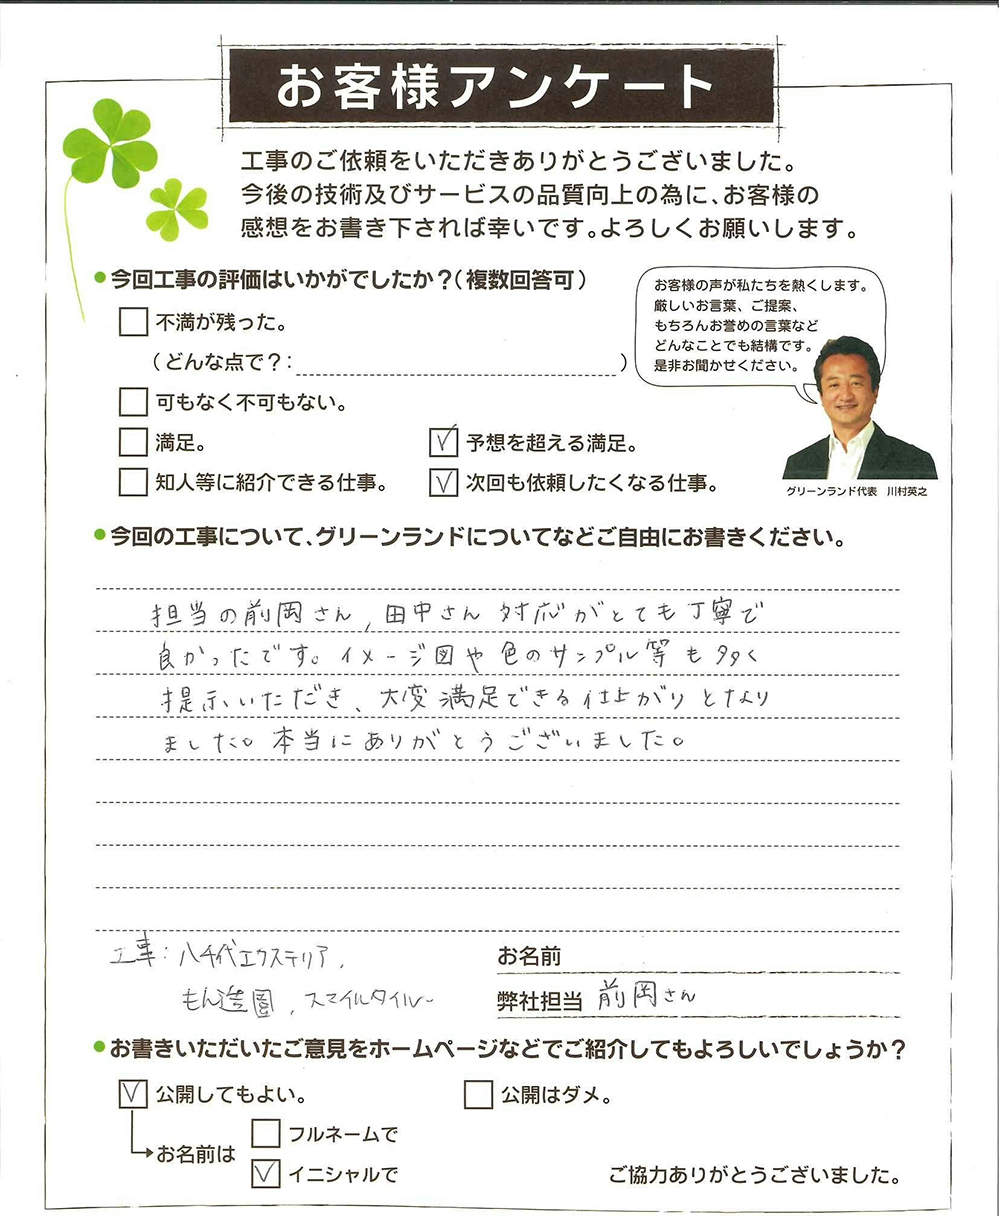 お客様アンケート
工事のご依頼をいただきありがとうございました。
今後の技術及びサービスの品質向上の為に、お客様の
感想をお書き下されば幸いです。よろしくお願いします。
●今回工事の評価はいかがでしたか？（複数回答可）
不満が残った。
（どんな点で？： ）
可もなく不可もない。
満足。
予想を超える満足。
知人等に紹介できる仕事。
次回も依頼したくなる仕事。
お客様の声が私たちを熱くします。
厳しいお言葉、ご提案、
もちろんお誉めの言葉など
どんなことでも結構です。
是非お聞かせください。
グリーンランド代表 川村英之
●今回の工事について、グリーンランドについてなどご自由にお書きください。
担当の前岡さん，田中さん 対応がとても丁寧で
良かったです。イメージ図や色のサンプル等も多く
提示いただき、大変満足できる仕上がりとなり
ました。本当にありがとうございました。
工事：八千代エクステリア，
もん造園，スマイルタイル
お名前
弊社担当 前岡さん
●お書きいただいたご意見をホームページなどでご紹介してもよろしいでしょうか？
公開してもよい。
公開はダメ。
お名前は
フルネームで
イニシャルで
ご協力ありがとうございました。